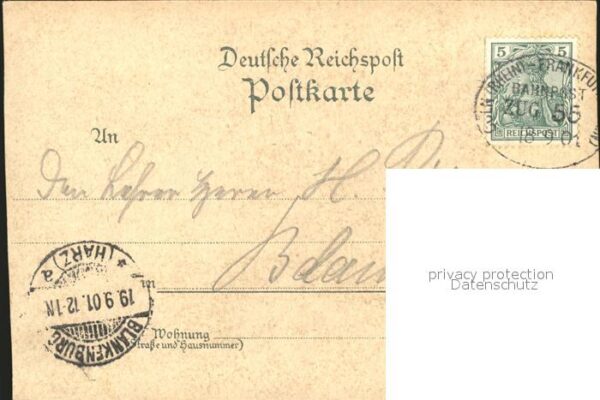 Deutsche Reichspost
Postkarte
5 5
REICHSPOST
CÖLN (RHEIN)-FRANKFUR
BAHNPOST
ZUG 55
18 9 01
An
Den Lehrer Herrn H.
in
Wohnung
(Straße und Hausnummer)
BLANKENBURG
* (HARZ) a
19.9.01.12-1N
privacy protection
Datenschutz